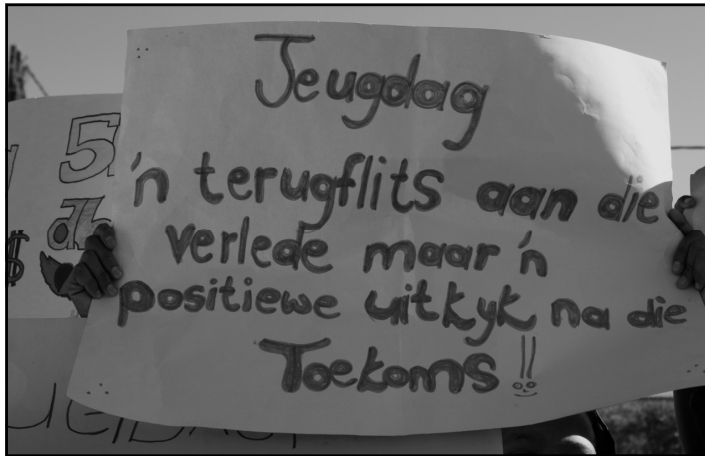 Jeugdag
'n terugflits aan die
verlede maar 'n
positiewe uitkyk na die
Toekoms!!
5
$